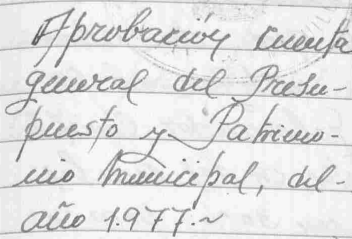 Aprobación cuenta
general del Presu-
puesto y Patrimo-
nio Municipal, del-
año 1.977.~